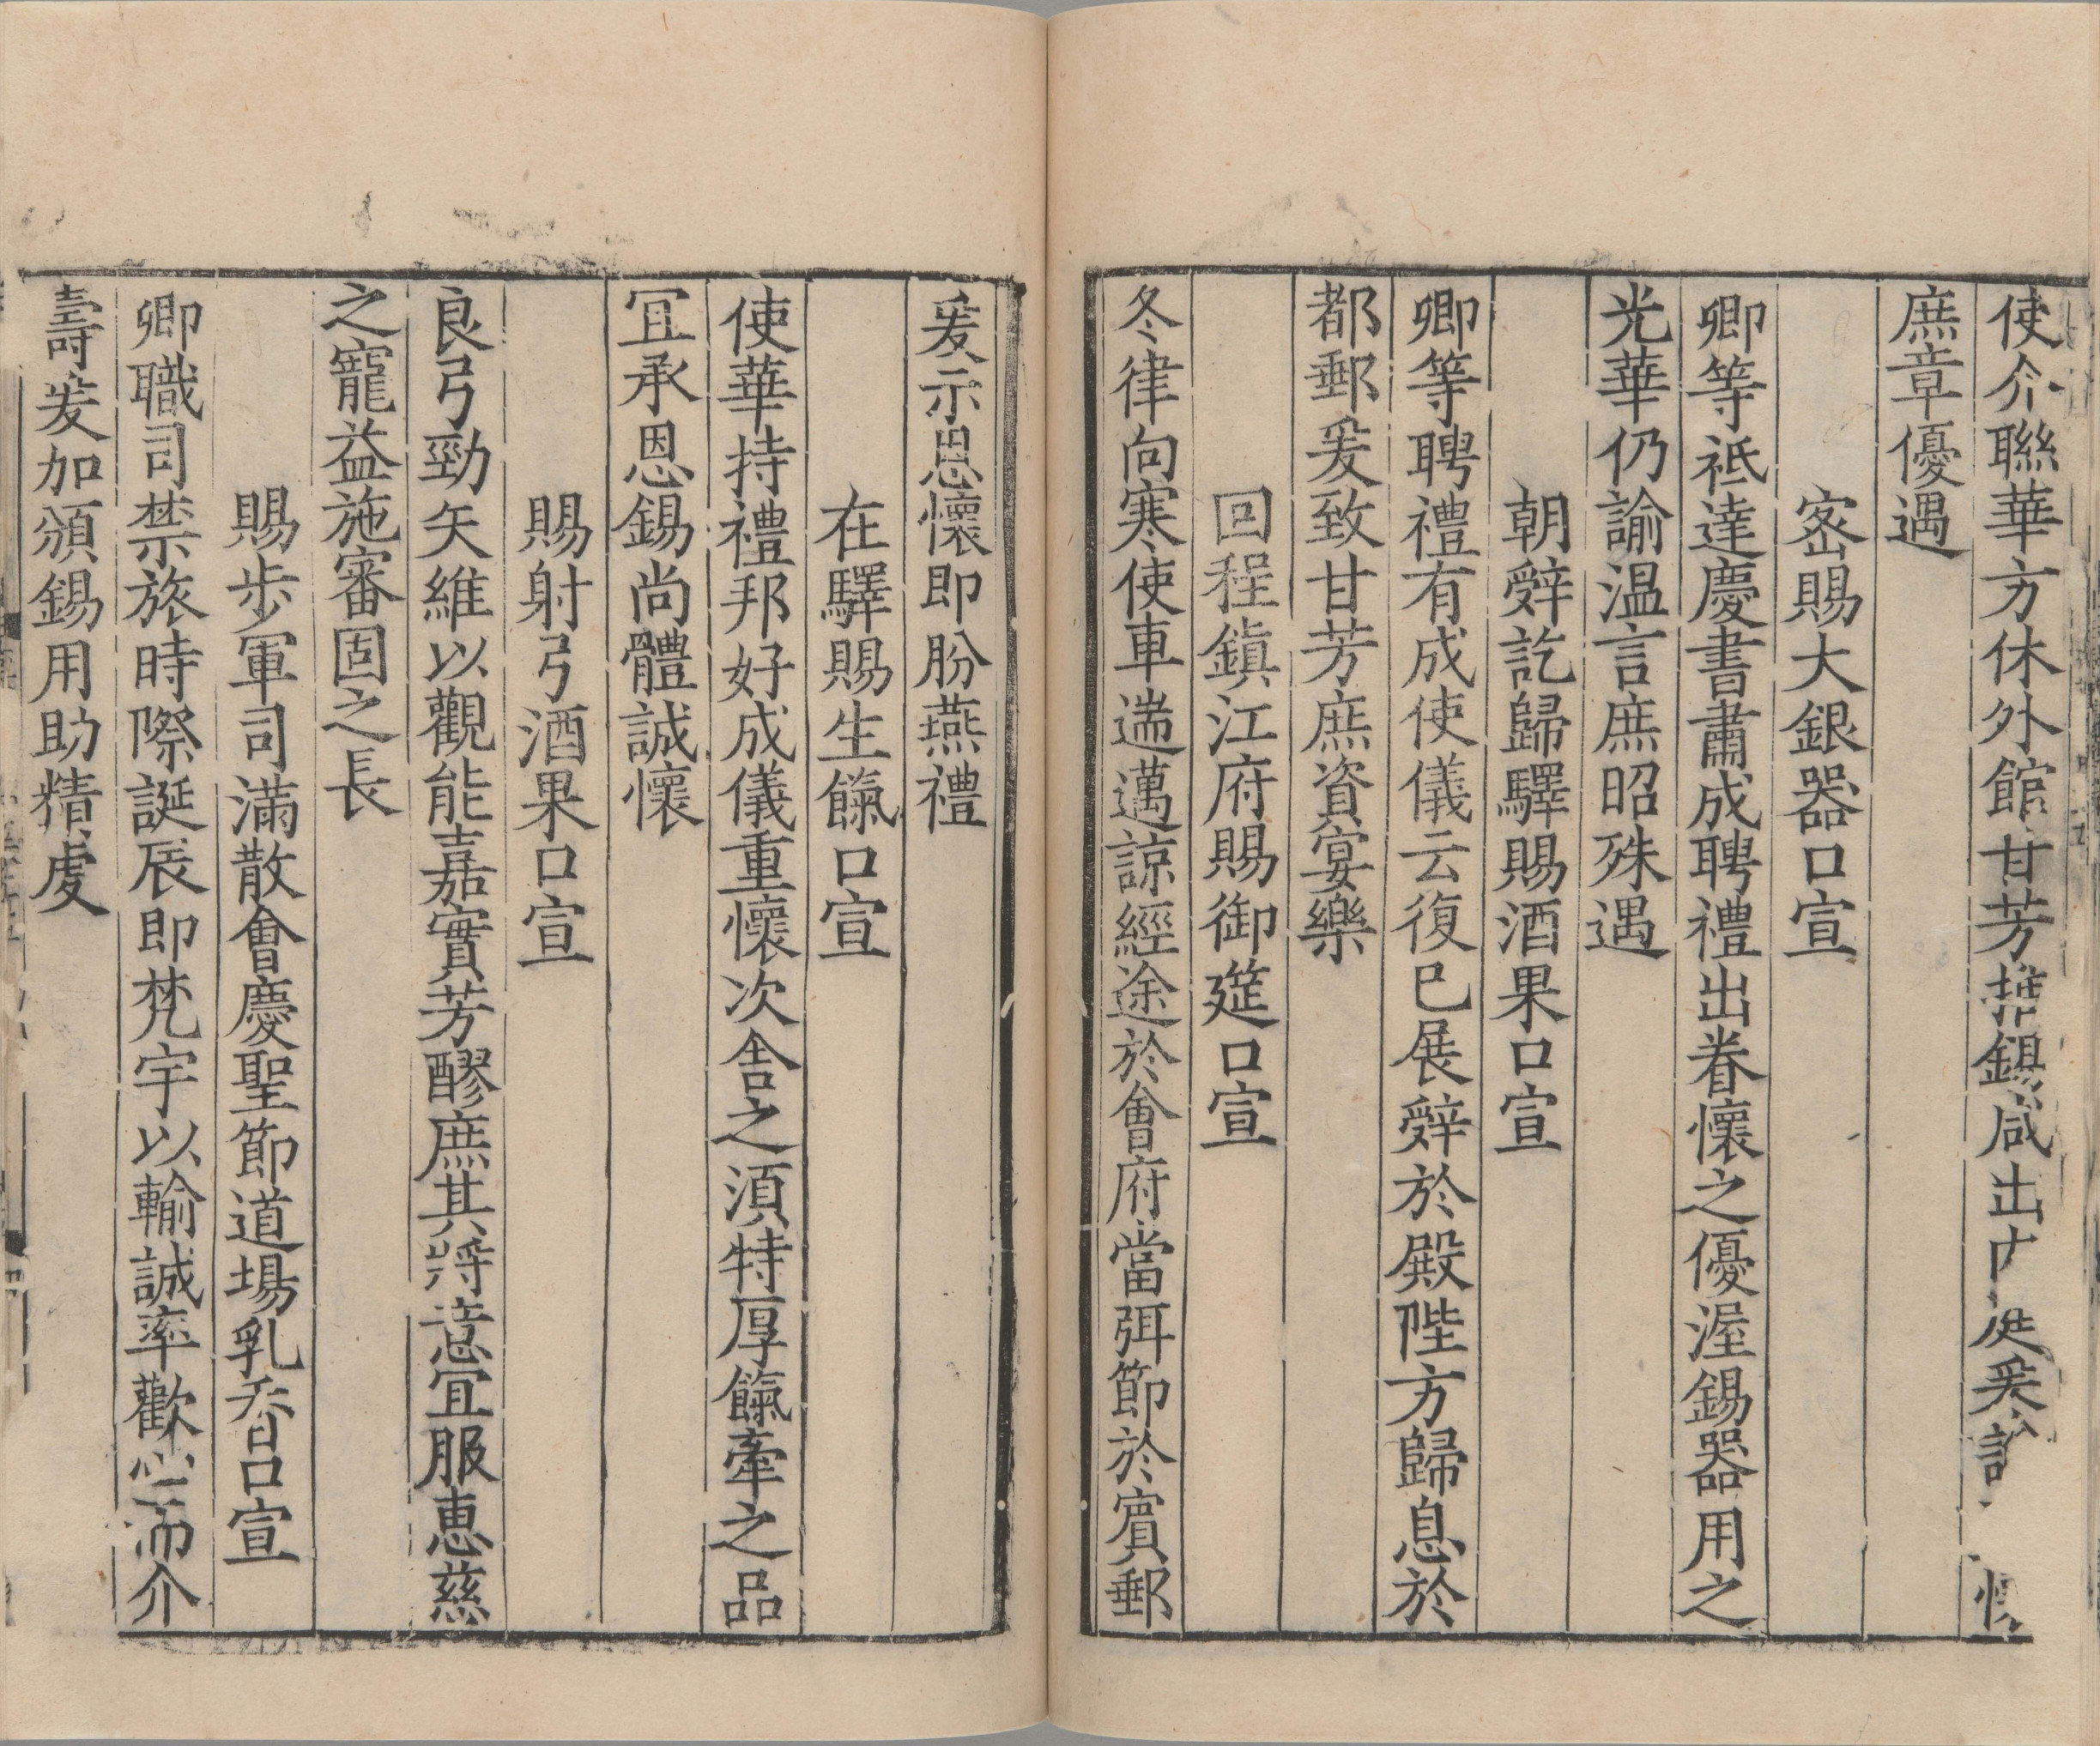 使介聯華方休外館甘芳攜錫咸出
庶章優遇
密賜大銀器口宣
卿等祗達慶書肅成聘禮出眷懷之優渥錫器用之
光華仍諭温言庶昭殊遇
朝辝訖歸驛賜酒果口宣
卿等聘禮有成使儀云復已展辝於殿陛方歸息於
都郵爰致甘芳庶資宴樂
回程鎮江府賜御筵口宣
冬律向寒使車遄邁諒經途於會府當弭節於賓郵
爰示恩懷即肦燕禮
在驛賜生餼口宣
使華持禮邦好成儀重懷次舎之湏特厚餼牽之品
冝承恩錫尚體誠懷
賜射弓酒果口宣
良弓勁矢維以觀能嘉實芳醪庶其將意冝服恵慈
之寵益施審固之長
賜歩軍司滿散會慶聖節道場乳香口宣
卿職司禁旅時際誕辰即梵宇以輸誠率歡心而介
壽爰加頒錫用助精虔